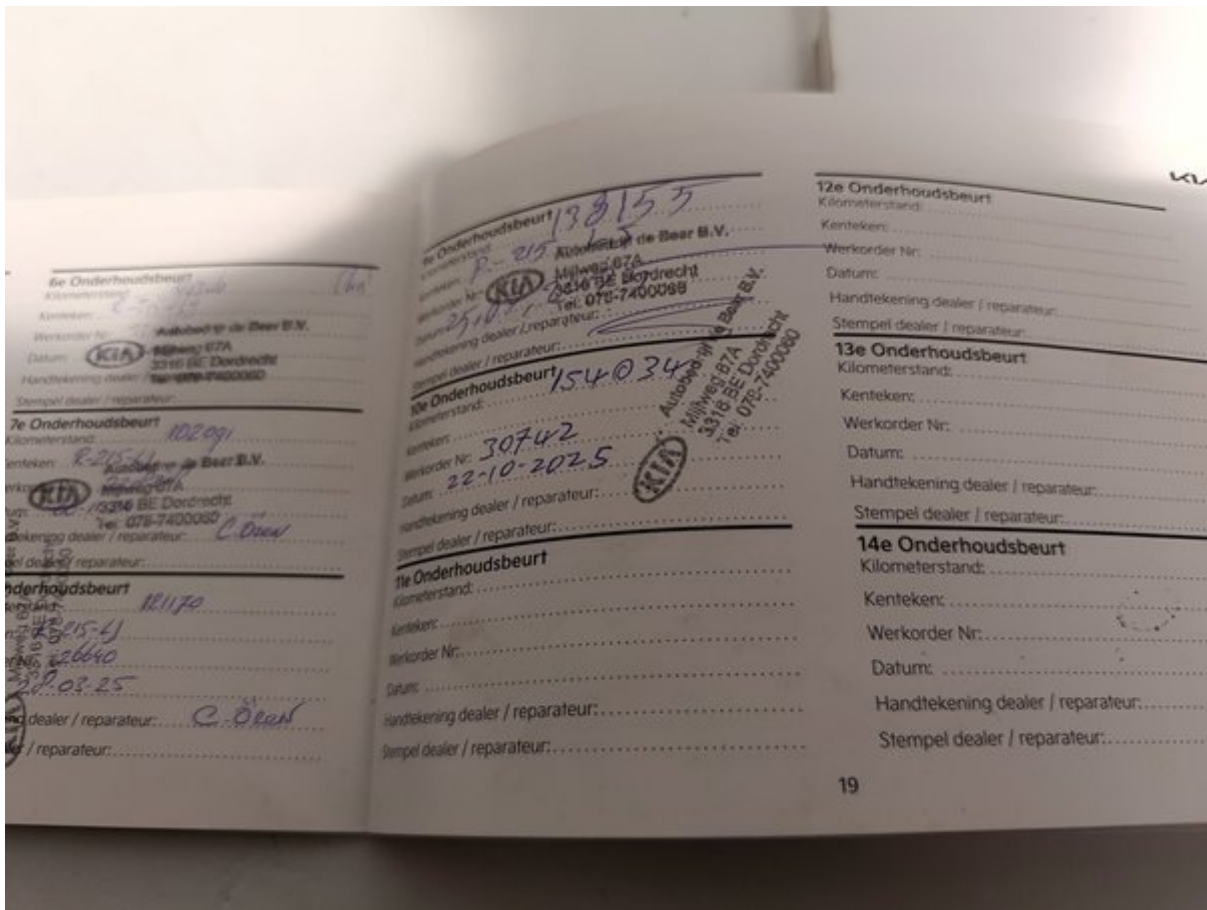 6e Onderhoudsbeurt
Kilometerstand:
Kenteken:
Werkorder Nr:
Autobedrijf de Beer B.V.
Datum:
KIA
Mijlweg 67A
3316 BE Dordrecht
Tel: 078-7400060
Handtekening dealer /
Stempel dealer / reparateur:
7e Onderhoudsbeurt
Kilometerstand: 102091
Kenteken: R-215-LJ
Autobedrijf de Beer B.V.
KIA
Mijlweg 67A
3316 BE Dordrecht
Tel: 078-7400060
dealer / reparateur: C.Ören
dealer / reparateur:
nderhoudsbeurt
121170
215-LJ
26640
28-03-25
dealer / reparateur: C.Ören
/ reparateur:
KIA
9e Onderhoudsbeurt
Kilometerstand: 138155
Kenteken: R-215-LJ
Autobedrijf de Beer B.V.
Werkorder Nr:
KIA
Mijlweg 67A
3316 BE Dordrecht
Tel: 078-7400060
Datum:
Handtekening dealer / reparateur:
Stempel dealer / reparateur:
10e Onderhoudsbeurt
Kilometerstand: 154034
Kenteken:
Werkorder Nr: 30742
Datum: 22-10-2025
Handtekening dealer / reparateur:
Stempel dealer / reparateur:
KIA
Autobedrijf de Beer B.V.
Mijlweg 67A
3316 BE Dordrecht
Tel: 078-7400060
11e Onderhoudsbeurt
Kilometerstand:
Kenteken:
Werkorder Nr:
Datum:
Handtekening dealer / reparateur:
Stempel dealer / reparateur:
12e Onderhoudsbeurt
Kilometerstand:
Kenteken:
Werkorder Nr:
Datum:
Handtekening dealer / reparateur:
Stempel dealer / reparateur:
13e Onderhoudsbeurt
Kilometerstand:
Kenteken:
Werkorder Nr:
Datum:
Handtekening dealer / reparateur:
Stempel dealer / reparateur:
14e Onderhoudsbeurt
Kilometerstand:
Kenteken:
Werkorder Nr:
Datum:
Handtekening dealer / reparateur:
Stempel dealer / reparateur:
19